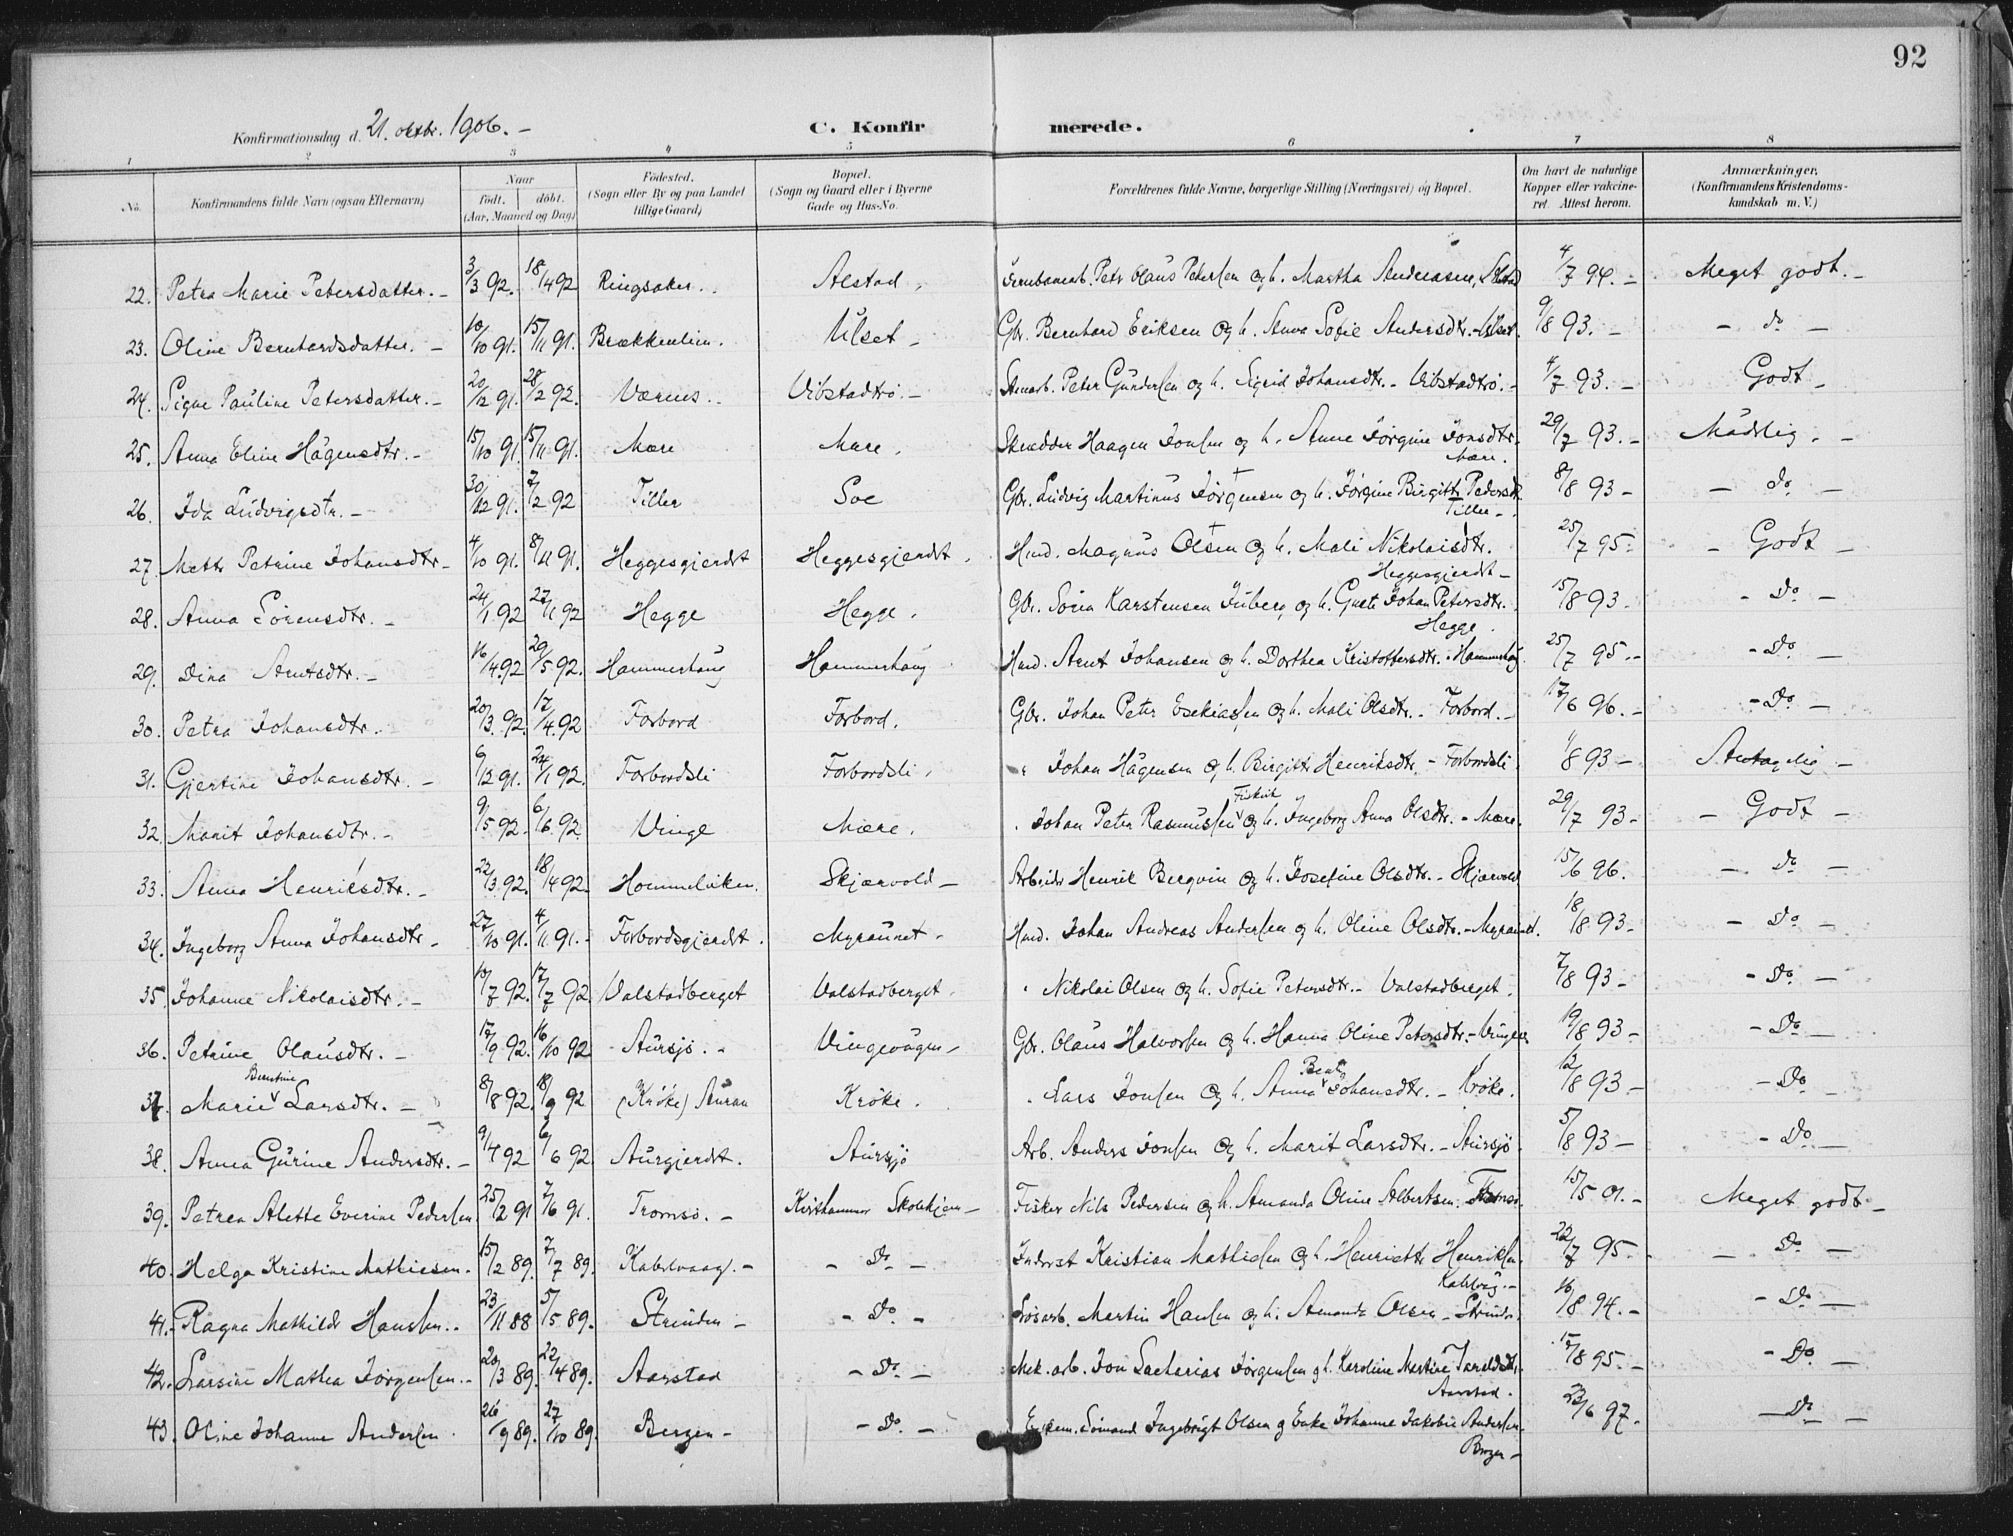 92
Konfirmationsdag d. 21. oktbr. 1906. –
C. Konfir merede.
1 2 3 4 5 6 7 8
No. Konfirmandens fulde Navn (ogsaa Efternavn) Naar født. døbt. (Aar, Maaned og Dag) Fødested. (Sogn eller By og paa Landet tillige Gaard) Bopæl. (Sogn og Gaard eller i Byerne Gade og Hus-No. Forældrenes fulde Navne, borgerlige Stilling (Næringsvei) og Bopæl. Om havt de naturlige Kopper eller vakcineret. Attest herom. Anmærkninger. (Konfirmandens Kristendomskundskab m. V.)
22. Petra Marie Petersdatter. – 3/3 92. 18/4 92 Ringsaker. Alstad. Petr Olaus Petersen og h. Martha Andreasen, Alstad 4/7 94. – Meget godt. –
23. Oline Bernhardsdatter. – 10/10 91. 15/11 91. Brækkenlien. Ulset – Gbr. Bernhard Eriksen og h. Anna Sofie Andersdtr. – Ulset. 9/8 93. – – do –
24. Signe Pauline Petersdatter. – 20/12 91. 28/2 92. Værnes. Vibstadtrø. – Stenarb. Peter Gundersen og h. Sigrid Johansdtr. – Vibstadtrø. – 4/7 93. – Godt –
25. Anna Eline Hågensdtr. – 15/10 91. 15/11 91. Mære Mære. Skrædder Haagen Jonsen og h. Anne Jørgine Jonsdtr. Mære. 29/7 93. – Mådelig. –
26. Ida Ludvigsdtr. – 30/12 91. 7/2 92 Tiller Soe Gbr. Ludvig Martinus Jørgensen † og h. Jørgine Birgitte Pedersdtr. Tiller – 8/8 93 – – do –
27. Mette Petrine Johansdtr – 4/10 91. 8/11 91. Heggesgjerdet Heggesgjerdet. Hmd. Magnus Olsen † og h. Mali Nikolaisdtr. Heggesgjerdet – 25/7 95. – Godt –
28. Anna Sörensdtr. – 24/1 92 27/11 92 Hegge Hegge. Gbr. Sören Karstensen Juberg og h. Johan Petersdtr. Hegge. 15/8 93. – Do –
29. Dina Arntsdtr. – 16/4 92 29/5 92. Hammerhaug Hammerhaug Hmd. Arnt Johansen og h. Dorthea Kristoffersdtr. – Hammerhaug. 25/7 95. – – Do –
30. Petra Johansdtr. 20/3. 92. 17/4. 92 Forbord Forbord. Gbr. Johan Peter Esekiassen og h. Mali Olsdtr. – Forbord. – 17/6 96. – – Do –
31. Gjertine Johansdtr. – 6/12 91. 24/1 92. Forbordsli Forbordsli. " Johan Hågensen og h. Birgitte Henriksdtr. – Forbordsli. 1/8 93 – Antagelig –
32. Marit Johansdtr. – 9/5 92 – 6/6 92. Vinge Mære. " Johan Peter Rasmussen Fiskvik og h. Ingeborg Anna Olsdtr. – Mære. 29/7 93 – – Godt –
33. Anna Henriksdtr. – 22/3 92. 18/4 92. Hommelviken. Skjærvold – Arbeider Henrik Bergvin og h. Josefine Olsdtr. – Skjærvold 15/6 96. – Do –
34. Ingeborg Anna Johansdtr – 27/10 91. 4/11 91. – Forbordsgjerdet. Myraunet – Hmd. Johan Andreas Andersen og h. Oline Olsdtr. – Myraunet. 18/8 93 – – Do –
35. Johanne Nikolaisdtr. – 10/7 92. 17/7 92 Valstadberget Valstadberget. " Nikolai Olsen og h. Sofie Petersdtr. – Valstadberget. 7/8 93 – – Do –
36. Petrine Olausdtr. – 17/9 92. 16/10 92 Aursjö. – Vingevaagen – Gbr. Olaus Halvorsen og h. Hanna Oline Petersdtr. – 19/8 93 – – Do –
37. Marie Berntine Larsdtr. – 8/8 92. 18/9 92 (Kröke) Auran Kröke. " Lars Jonsen og h. Anna Beate Johansdtr. – Kröke. 12/8 93 – – Do –
38. Anna Gurine Andersdtr. – 9/4 92 6/6 92. Aurgjerdet. Aursjö Arb. Anders Jonsen og h. Marit Larsdtr. – Aursjö. 5/8 93 – – Do –
39. Petrea Alette Everine Pedersen. 25/2 91 7/6 91. Tromsö. – Skolehjem – Fisker Nils Pedersen og h. Amanda Oline Albertsen. Tromsö. 15/5 01. – Meget godt –
40. Helga Kristine Mathiesen. 15/2 89. 7/7 89. Kabelvaag. – – Do – Inderst Kristian Mathisen og h. Henriette Henriksen. Kabelvåg. – 22/7 95. – – Do –
41. – Ragna Mathilde Hansen. – 23/11 88 5/5 89. Strinden – – Do – Løsarb. Martin Hansen og h. Amanda Olsen – Strinden. 16/8 94. – – Do –
42. Larsine Mathea Jørgensen. – 20/3 89. 22/4 89. Aarstad – Do – Mek. arb. Jon Sacharias Jørgensen og h. Karoline Martine Aarstad. 17/8 95. – – Do –
43. Oline Johanne Andersen. 26/9 89. 27/10 89. Bergen – – Do – Sømand Ingebrigt Olsen og Enke Johanne Jakobie Andersen. Bergen – 23/6 97. – Do –